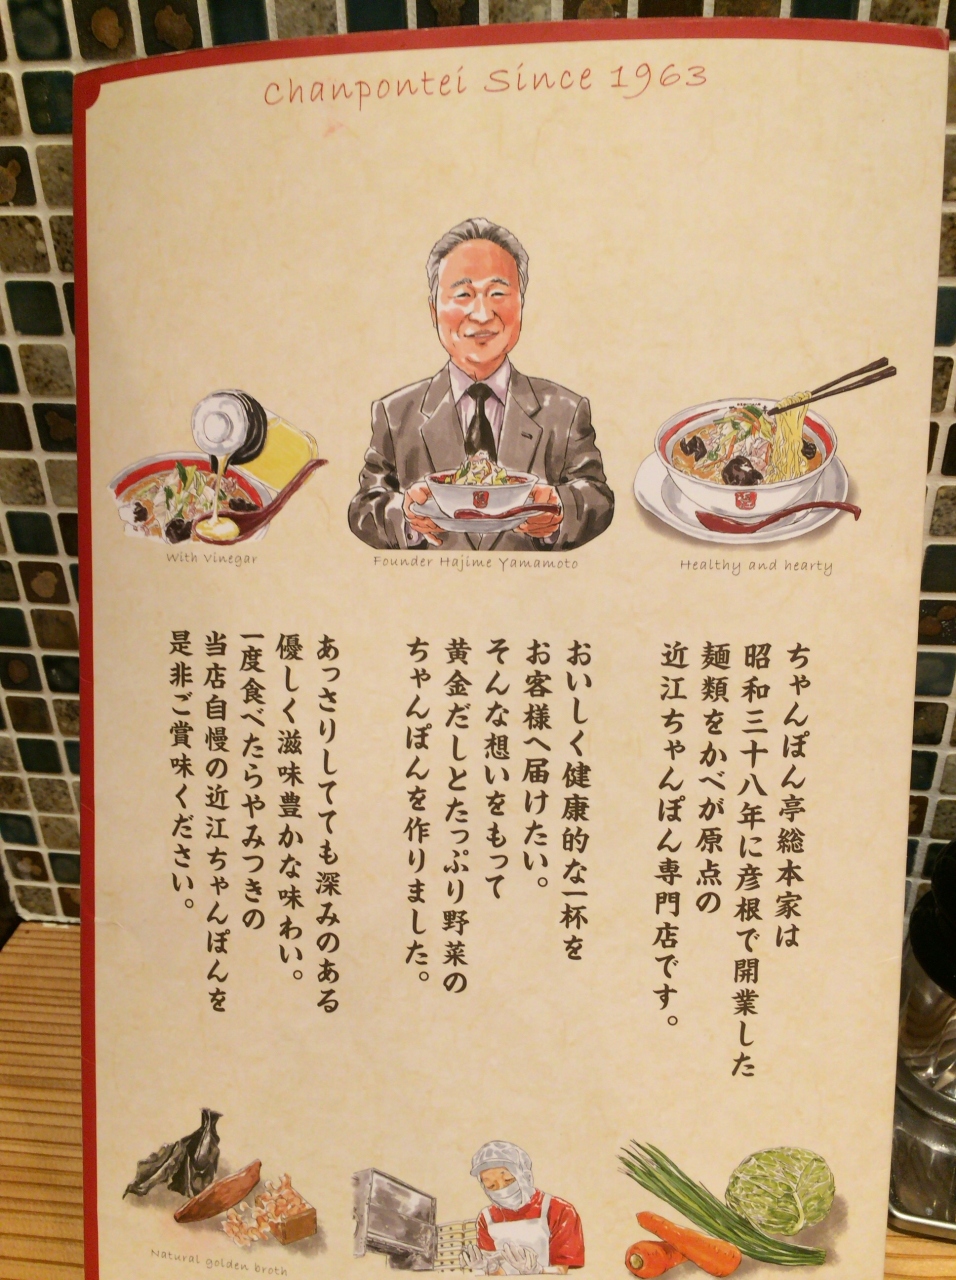 Chanpontei Since 1963
With Vinegar
Founder Hajime Yamamoto
Healthy and hearty
ちゃんぽん亭総本家は
昭和三十八年に彦根で開業した
麺類をかべが原点の
近江ちゃんぽん専門店です。
おいしく健康的な一杯を
お客様へ届けたい。
そんな想いをもって
黄金だしとたっぷり野菜の
ちゃんぽんを作りました。
あっさりしてても深みのある
優しく滋味豊かな味わい。
一度食べたらやみつきの
当店自慢の近江ちゃんぽんを
是非ご賞味ください。
Natural golden broth